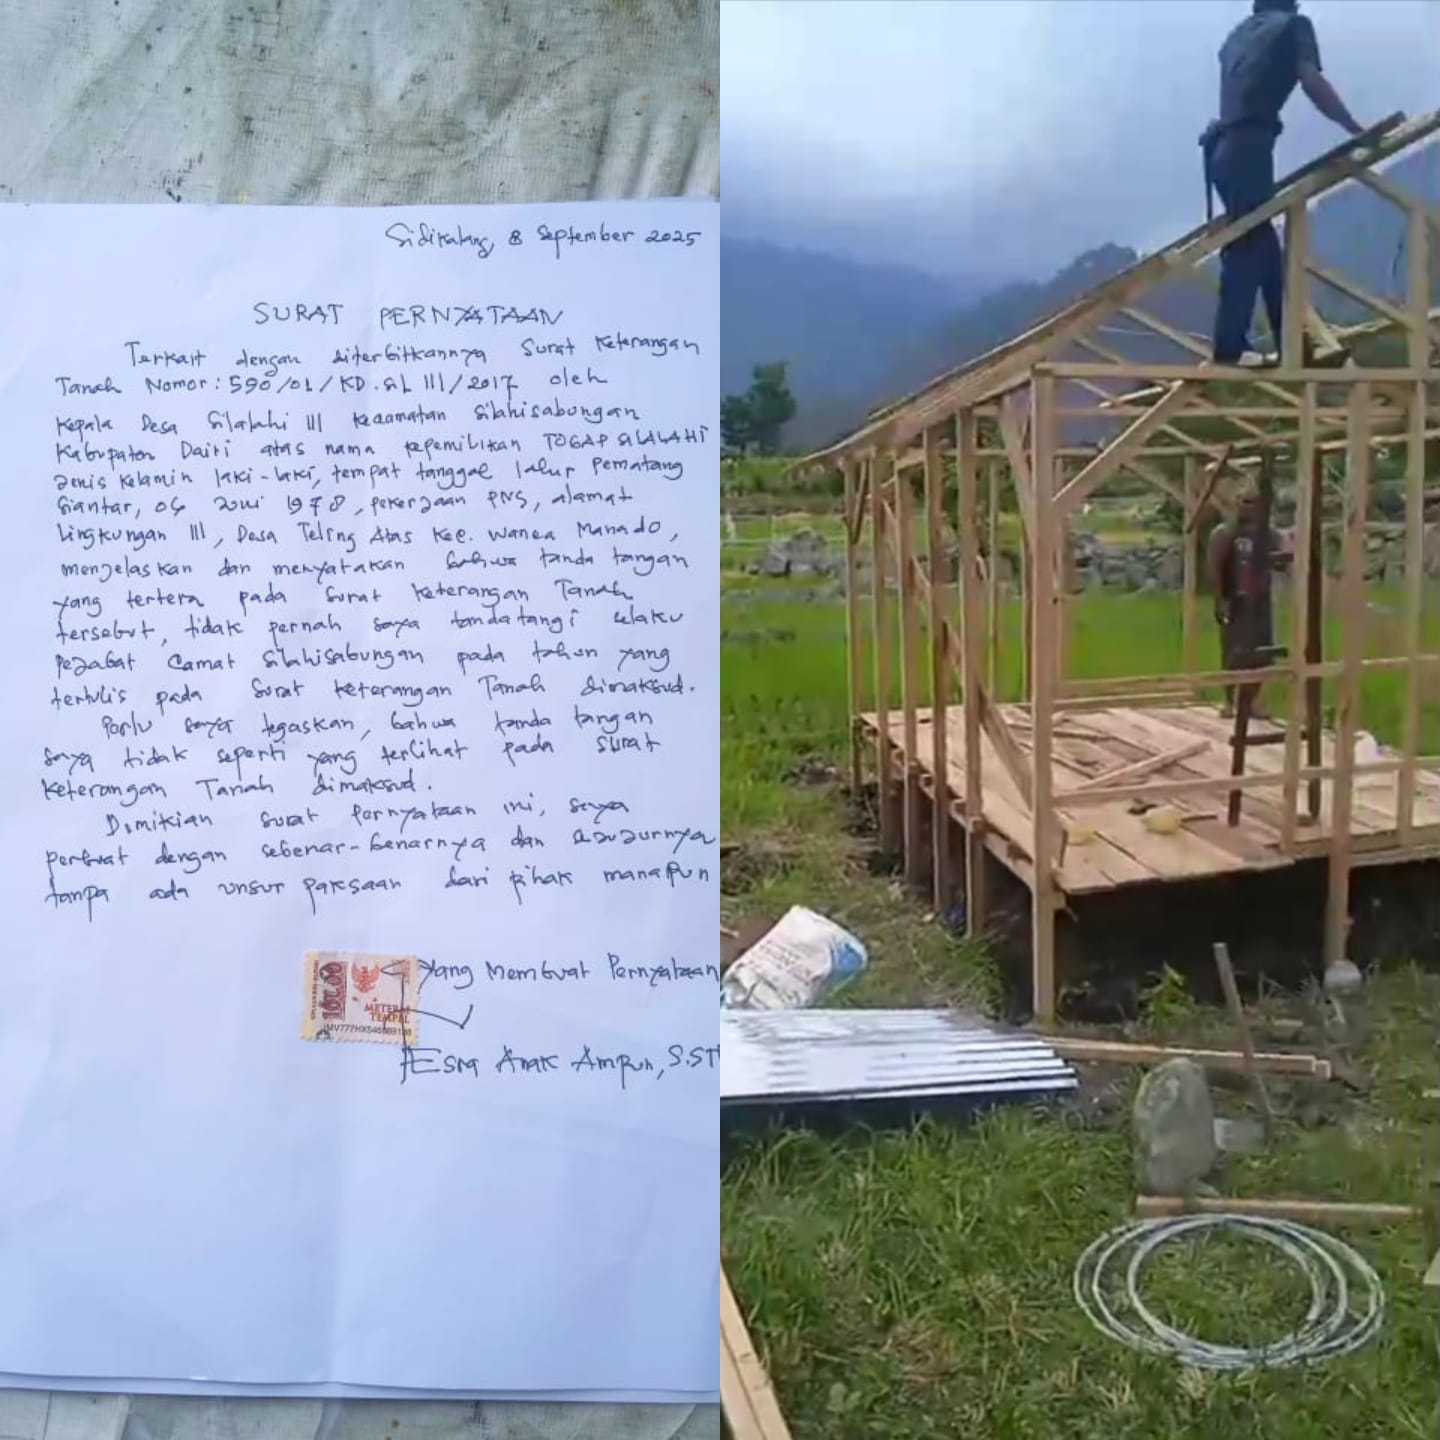 Sidikalang, 8 September 2025
SURAT PERNYATAAN
Terkait dengan diterbitkannya Surat Keterangan
Tanah Nomor: 590/01/KD.SL III/2017 oleh
Kepala Desa Silalahi III Kecamatan Silahisabungan
Kabupaten Dairi atas nama kepemilikan TOGAP SILALAHI
Jenis kelamin laki-laki, tempat tanggal lahir Pematang
Siantar, 04 Juni 1978, pekerjaan PNS, alamat
Lingkungan III, Desa Teling Atas Kec. Wanea Manado,
menjelaskan dan menyatakan bahwa tanda tangan
yang tertera pada Surat Keterangan Tanah
tersebut, tidak pernah saya tandatangi selaku
pejabat Camat Silahisabungan pada tahun yang
tertulis pada Surat Keterangan Tanah dimaksud.
Perlu saya tegaskan, bahwa tanda tangan
saya tidak seperti yang terlihat pada Surat
Keterangan Tanah dimaksud.
Demikian surat pernyataan ini, saya
perbuat dengan sebenar-benarnya dan sejujurnya
tanpa ada unsur paksaan dari pihak manapun
Yang Membuat Pernyataan
METERAI
TEMPEL
Esra Anak Ampun, S.ST